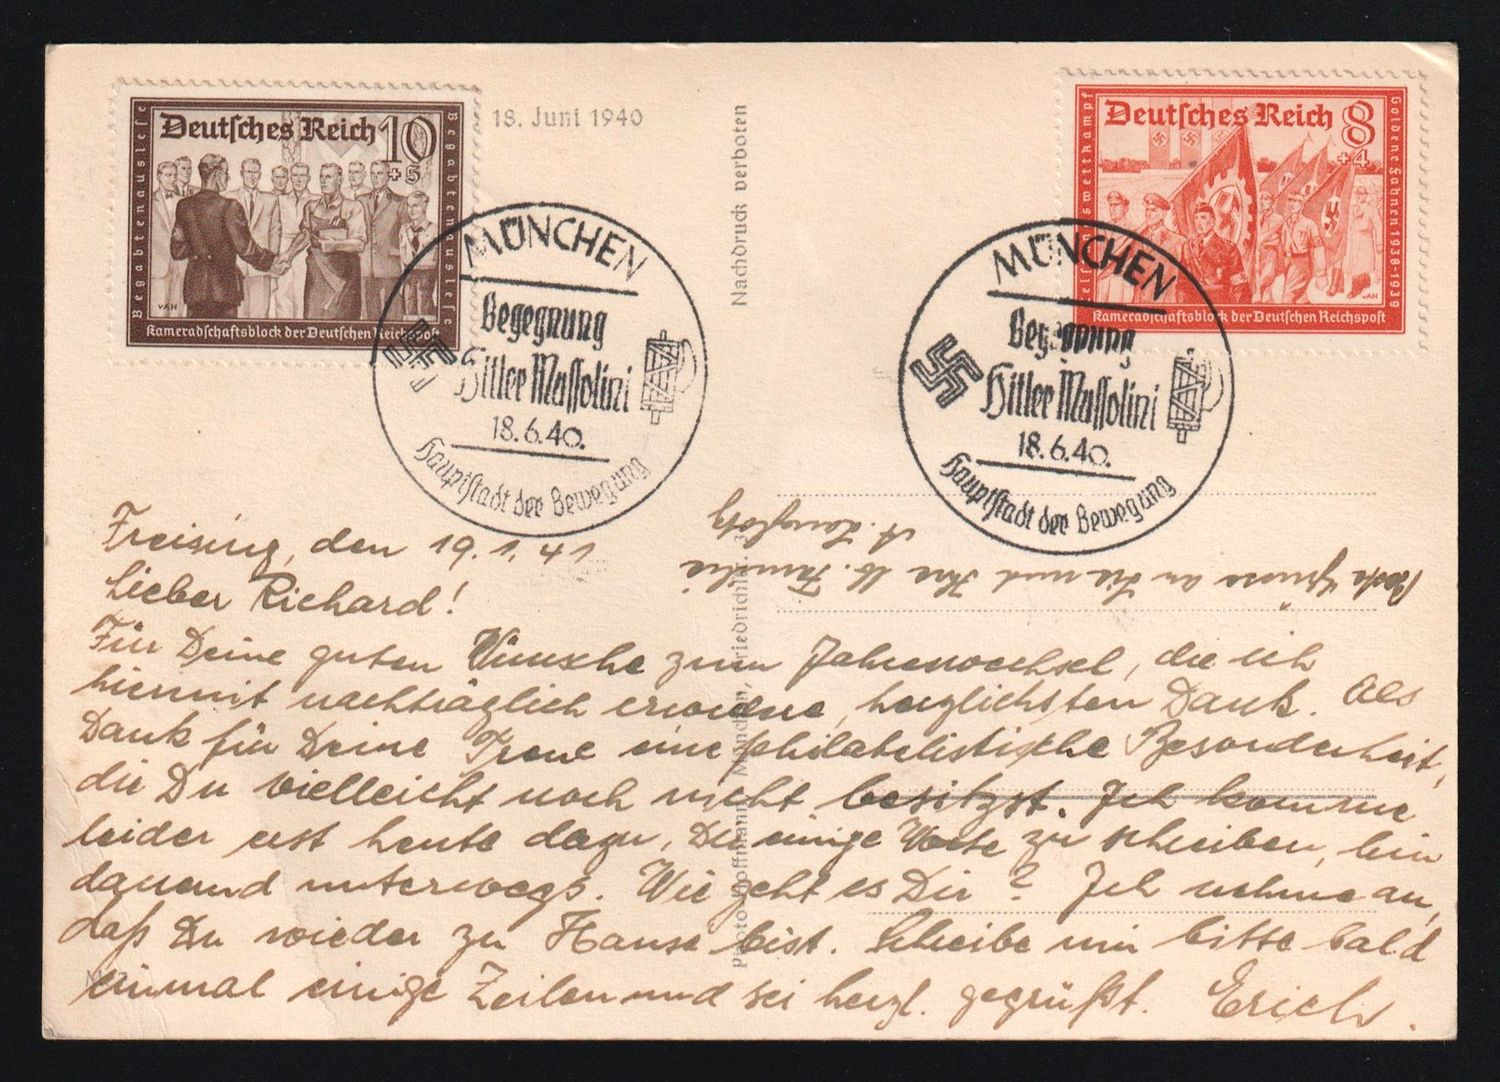 Deutsches Reich 10
+5
Begabtenauslese
Begabtenauslese
VAH
Kameradschaftsblock der Deutschen Reichspost
18. Juni 1940
Nachdruck verboten
Deutsches Reich 8
+4
Goldene Fahnen 1938-1939
VAH
Kameradschaftsblock der Deutschen Reichspost
MÜNCHEN
Begegnung
Hitler Mussolini
18.6.40.
Hauptstadt der Bewegung
MÜNCHEN
Begegnung
Hitler Mussolini
18.6.40.
Hauptstadt der Bewegung
Photo-Hoffmann, München, Friedrichstr.
Freising, den 19.1.41
Lieber Richard!
Für Deine guten Wünsche zum Jahreswechsel, die ich
hiermit nachträglich erwidere, herzlichsten Dank. Als
Dank für Deine Treue eine philatelistische Besonderheit,
die Du vielleicht noch nicht besitzst. Ich komme
leider erst heute dazu, Dir einige Worte zu schreiben, bin
dauernd unterwegs. Wie geht es Dir? Ich nehme an,
daß Du wieder zu Hause bist. Schreibe mir bitte bald
einmal einige Zeilen und sei herzl. gegrüßt. Erich.
Beste Grüsse an Sie und Ihre Familie